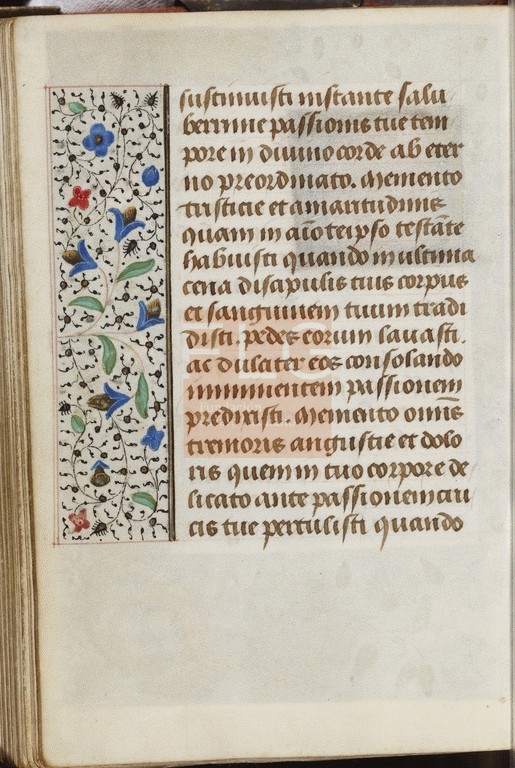 sustinuisti instante salu
berrime passionis tue tem
pore in diuino corde ab eter
no preordinato. Memento
tristicie et amaritudinis
quam in aīo teipso testāte
habuisti quando in ultima
cena discipulis tuis corpus
et sanguinem tuum tradi
disti. pedes eorum lauasti.
ac dulciter eos consolando
imminentem passionem
predixisti. Memento omīs
tremoris angustie et dolo
ris quem in tuo corpore de
licato ante passionem cru
cis tue pertulisti quando